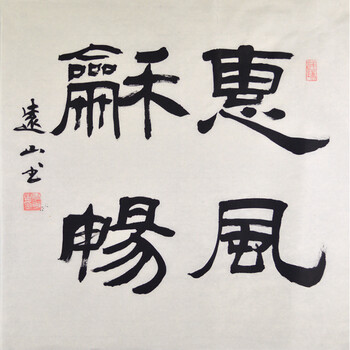 惠風
龢暢
遠山书